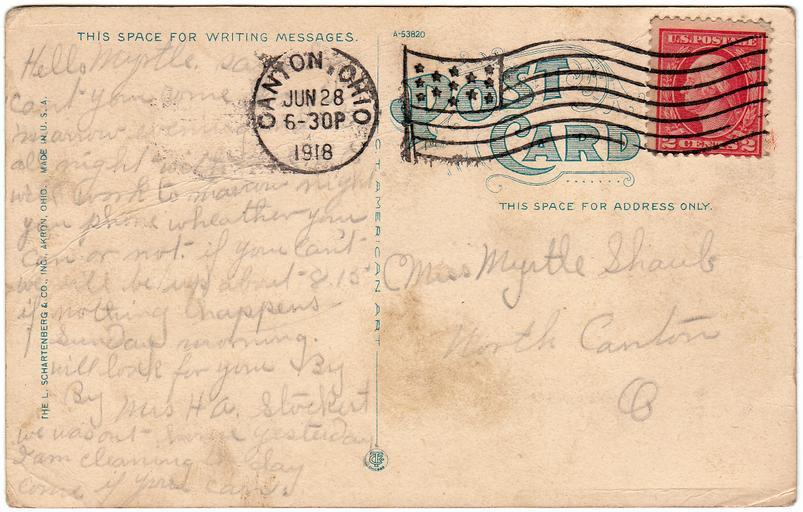 THIS SPACE FOR WRITING MESSAGES.
A-53820
Hello Myrtle, say
can't you come
morrow evening
all night
will work to morrow night
you phone wheather you
can or not. if you can't
we will be up about 8.15
if nothing happens
Sunday morning.
will look for you By
By
Mrs H A. Stockert
we was out home yesterday
I am cleaning to day
come if you can.
THE L. SCHARTENBERG & CO., INC. AKRON, OHIO. MADE IN U.S.A.
CANTON, OHIO
JUN 28
6-30P
1918
POST
CARD
U.S. POSTAGE
2 CENTS 2
THIS SPACE FOR ADDRESS ONLY.
AMERICAN ART
Miss Myrtle Shaub
North Canton
O